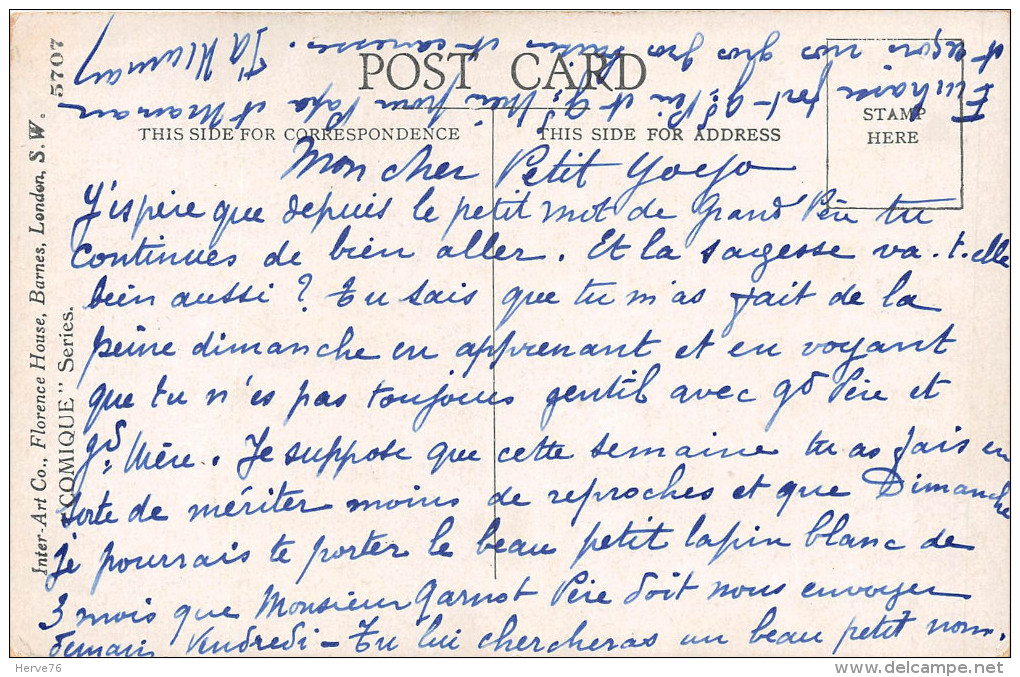 POST CARD
THIS SIDE FOR CORRESPONDENCE
THIS SIDE FOR ADDRESS
STAMP
HERE
Mon cher Petit Yoyo
J'espère que depuis le petit mot de Grand Père tu
continues de bien aller. Et la sagesse va-t-elle
bien aussi ? Tu sais que tu m'as fait de la
peine dimanche en apprenant et en voyant
que tu n'es pas toujours gentil avec gd Père et
gd Mère. Je suppose que cette semaine tu as fais en
sorte de mériter moins de reproches et que Dimanche
je pourrais te porter le beau petit lapin blanc de
3 mois que Monsieur Garnot Père doit nous envoyer
demain Vendredi - Tu lui chercheras un beau petit nom.
fort Gd Père et Gd Mère pour Papa et Maman
et reçois nos gros gros baisers et caresses.
Ta Maman
Inter-Art Co., Florence House, Barnes, London, S.W.
"COMIQUE" Series.
5707
Herve76